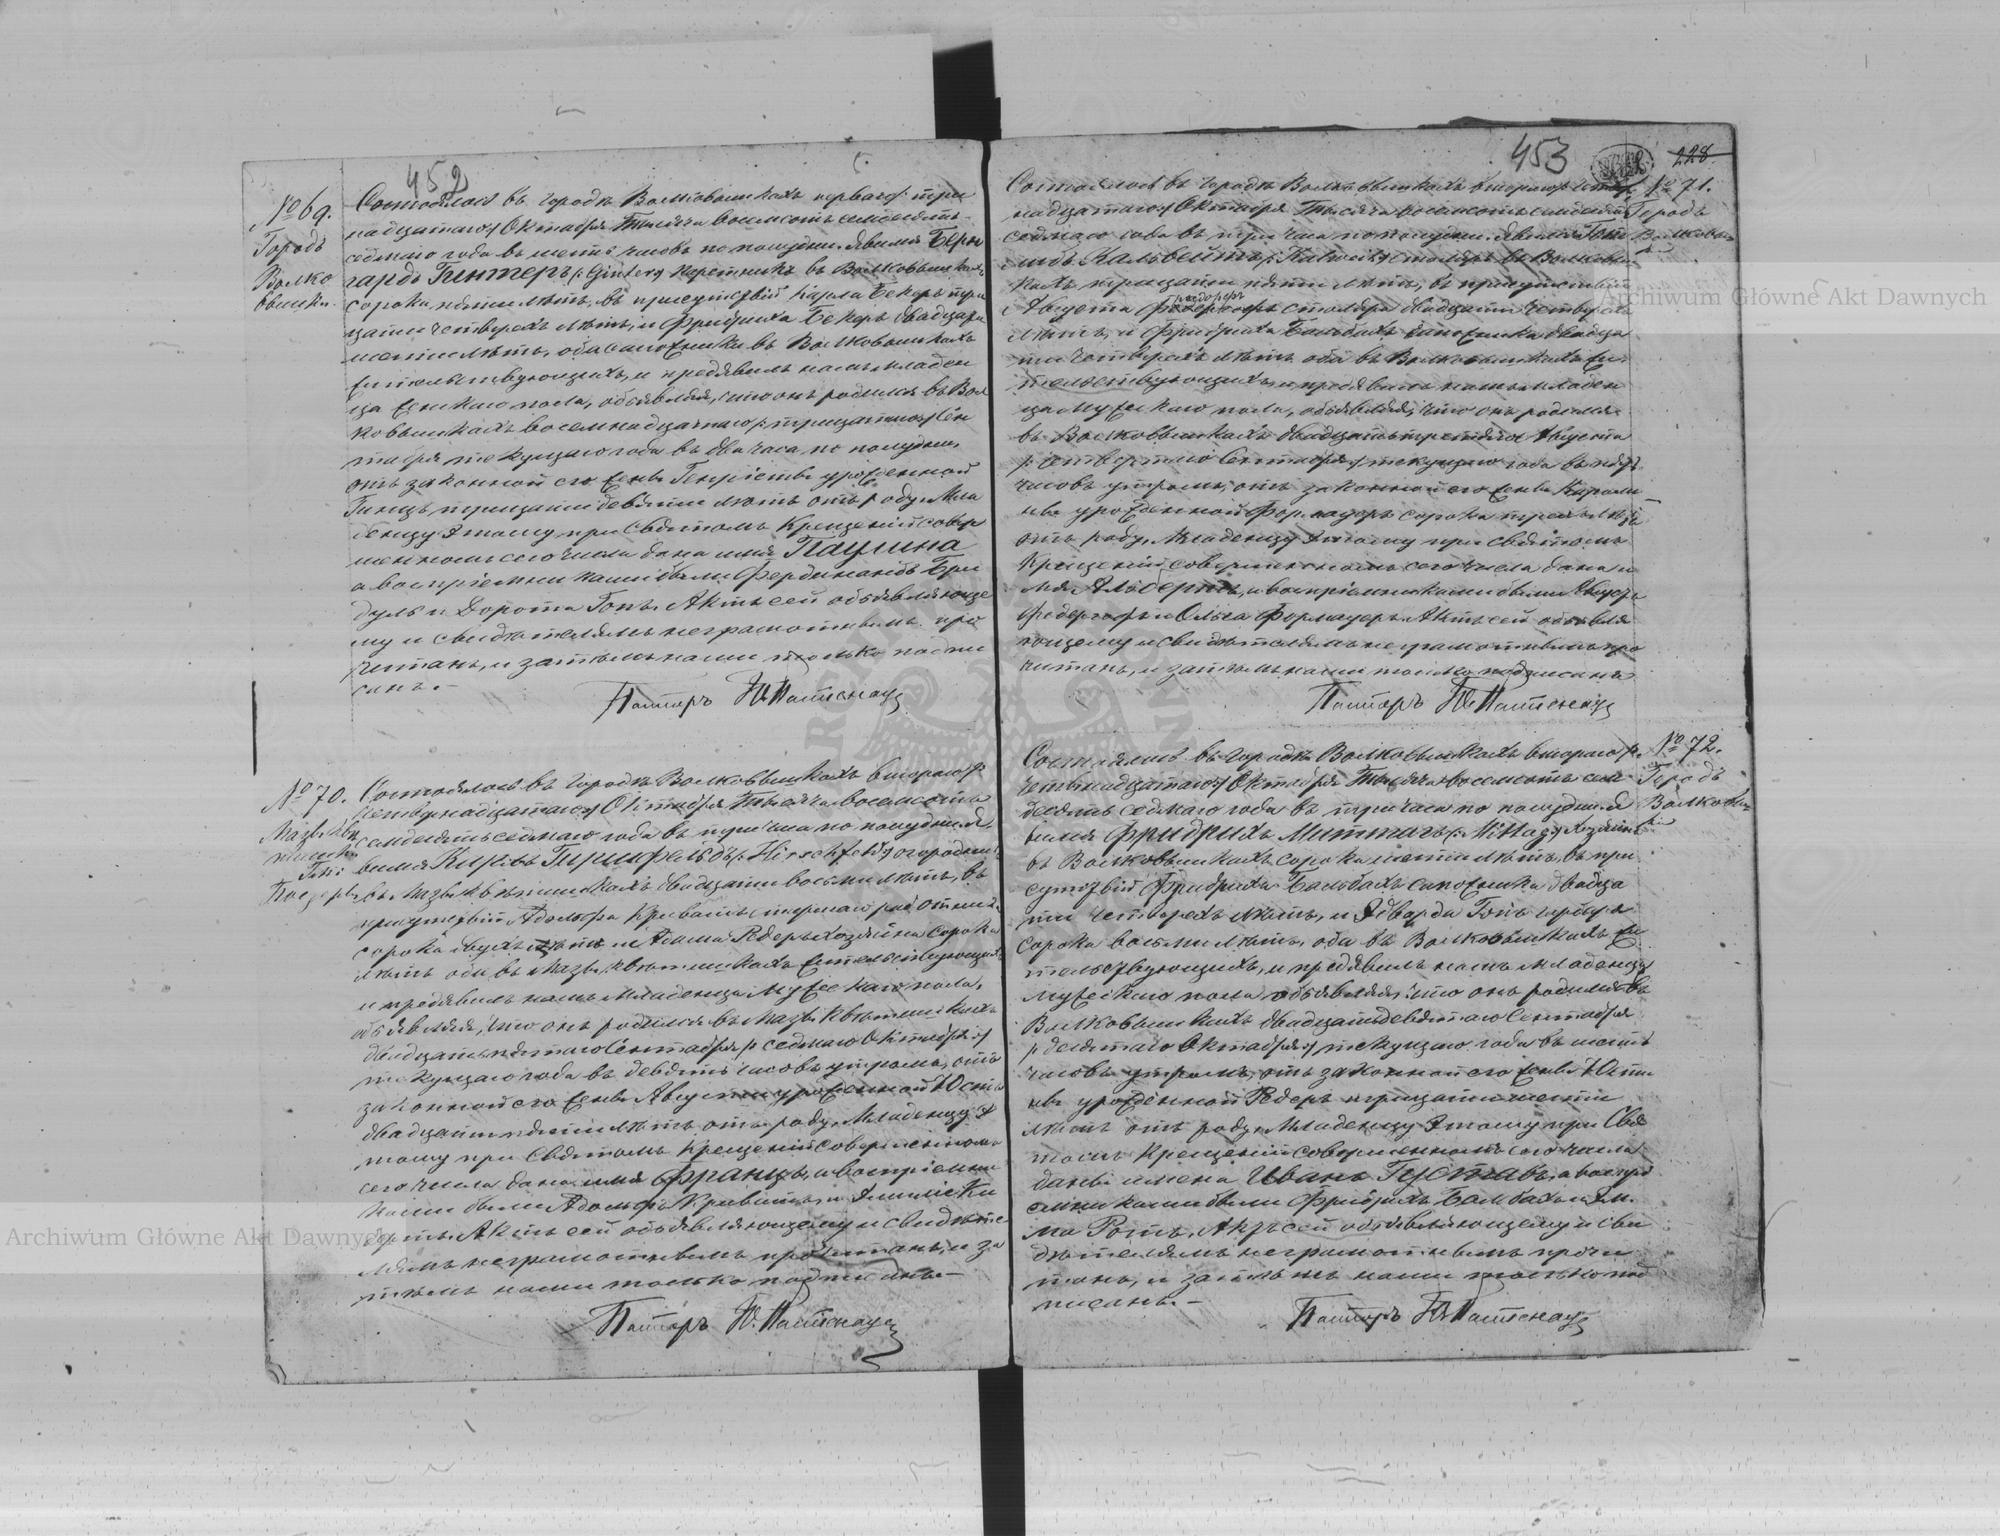 452
№ 69.
Городъ
Волко
вышки.
Состоялось въ городѣ Волковышкахъ перваго /: три
надцатаго :/ Октября Тысяча восемсотъ семдесятъ
седмаго года въ шесть часовъ по полудни. Явился Берн
гардъ Гинтеръ /: Ginter :/ въ Волковышкахъ
сорока пяти лѣтъ, въ присутствіи Карла Бекеръ три
цати четырехъ лѣтъ, и Фридриха Бекеръ двадцати
шести лѣтъ, оба сапожники въ Волковышкахъ
жительствующихъ, и предявилъ намъ младен
ца женскаго пола, объявляя, что онъ родился въ Вол
ковышкахъ восемнадцатаго /: трицатаго :/ Сен
тября текущаго года въ два часа по полудни,
отъ законной его жены Генріеты урожденной
Гинцъ, трицати девяти лѣтъ отъ роду. Мла
денцу этому при Святомъ Крещеніи совер
шенномъ сего числа дано имя Паулина
а воспріемниками были Фердинандъ Бри
дуль и Дорота Гопъ. Актъ сей объявляюще
му и свидѣтелямъ неграмотнымъ про
читанъ, и затѣмъ нами только подпи
санъ.—
Пасторъ
№ 70.
Состоялось въ городѣ Волковышкахъ втораго /:
четырнадцатаго :/ Октября Тысяча восемсотъ
семдесятъ седмаго года въ три часа по полудни. Я
вился Гиршфельдъ /: Hirschfeld :/ огородникъ
въ двадцати восьми лѣтъ, въ
присутствіи Адольфа Криватъ
сорока двухъ лѣтъ и Адама Редеръ хозяина сорока
лѣтъ оба въ жительствующихъ,
и предявилъ намъ младенца мужескаго пола,
объявляя, что онъ родился въ
двадцать пятаго Сентября /: седмаго Октября :/
текущаго года въ девять часовъ утромъ, отъ
законной его жены Августы урожденной Юстъ
двадцати пяти лѣтъ отъ роду. Младенцу э
тому при Святомъ Крещеніи совершенномъ
сего числа дано имя Францъ, а воспріемни
ками были Адольфъ Кривитъ, и
Актъ сей объявляющему и свидѣте
лямъ неграмотнымъ прочитанъ, и за
тѣмъ нами только подписанъ.—
Пасторъ
453
228
№ 71.
Городъ
Волковы
Состоялось въ городѣ Волковышкахъ втораго /: четыр
надцатаго :/ Октября Тысяча восемсотъ семдесятъ
седмаго года въ три часа по полудни. Явился
Кальвейтъ въ Волковыш
кахъ трицати пяти лѣтъ, въ присутствіи
Августа столяра двадцати четырехъ
лѣтъ, и Фридриха Бальбахъ сапожника двадца
ти четырехъ лѣтъ оба въ Волковышкахъ жи
тельствующихъ, и предявилъ намъ младен
ца мужескаго пола, объявляя, что онъ родился
въ Волковышкахъ двадцать третяго Августа
/: четвертаго Сентября :/ текущаго года въ пять
часовъ утромъ, отъ законной его жены Кароли
ны урожденной Формадеръ сорока трехъ лѣтъ
отъ роду. Младенцу этому при Святомъ
Крещеніи совершенномъ сего числа дано и
мя Альбертъ, а воспріемниками были Августъ
и Ольга Формадеръ. Актъ сей объявля
ющему и свидѣтелямъ неграмотнымъ про
читанъ, и затѣмъ нами только подписанъ
Пасторъ
№ 72.
Городъ
Волковы
Состоялось въ городѣ Волковышкахъ втораго /:
четырнадцатаго :/ Октября Тысяча восемсотъ сем
десятъ седмаго года въ три часа по полудни. Я
вился Фридрихъ Миттагъ /: Mittag :/ хозяинъ
въ Волковышкахъ сорока шести лѣтъ, въ при
сутствіи Фридриха Бальбахъ сапожника двадца
ти четырехъ лѣтъ, и Эдварда Гопъ
сорока восьми лѣтъ, оба въ Волковышкахъ жи
тельствующихъ, и предявилъ намъ младенца
мужескаго пола объявляя, что онъ родился въ
Волковышкахъ двадцать девятаго Сентября
/: десятаго Октября :/ текущаго года въ шесть
часовъ утромъ, отъ законной его жены Юсти
ны урожденной Редеръ трицати шести
лѣтъ отъ роду. Младенцу этому при Свя
томъ Крещеніи совершенномъ сего числа
даны имена Иванъ Густавъ, а воспрі
емниками были Фридрихъ Бальбахъ и Эм
ма Ротъ. Актъ сей объявляющему и сви
дѣтелямъ неграмотнымъ прочи
танъ, и затѣмъ нами только под
писанъ.—
Пасторъ
Archiwum Główne Akt Dawnych
Archiwum Główne Akt Dawnych